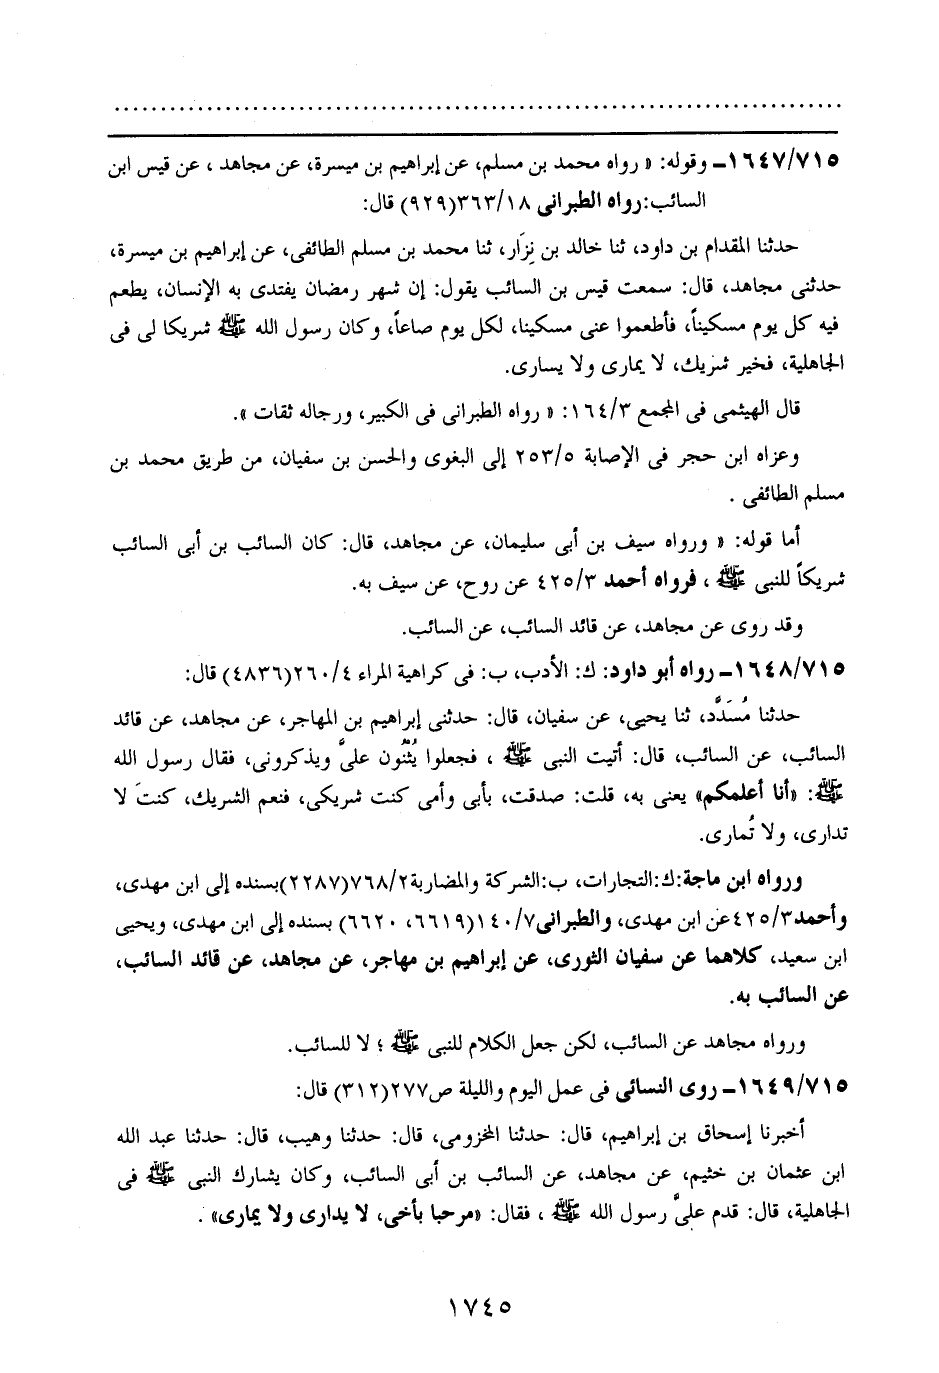 ١٦٤٧/٧١٥ــ وقوله: « رواه محمد بن مسلم، عن إبراهيم بن ميسرة، عن مجاهد ، عن قيس ابن
السائب:رواه الطبرانى ٣٦٣/١٨(٩٢٩) قال:
حدثنا المقدام بن داود، ثنا خالد بن نِزَار، ثنا محمد بن مسلم الطائفى، عن إبراهيم بن ميسرة،
حدثنى مجاهد، قال: سمعت قيس بن السائب يقول: إن شهر رمضان يفتدى به الإنسان، يطعم
فيه كل يوم مسكيناً، فأطعموا عنى مسكينا، لكل يوم صاعاً، وكان رسول الله ﷺ شريكا لى فى
الجاهلية، فخير شريك، لا يمارى ولا يسارى.
قال الهيثمى فى المجمع ١٦٤/٣: « رواه الطبرانى فى الكبير، ورجاله ثقات ».
وعزاه ابن حجر فى الإصابة ٢٥٣/٥ إلى البغوى والحسن بن سفيان، من طريق محمد بن
مسلم الطائفى .
أما قوله: « ورواه سيف بن أبى سليمان، عن مجاهد، قال: كان السائب بن أبى السائب
شريكاً للنبى ﷺ ، فرواه أحمد ٤٢٥/٣ عن روح، عن سيف به.
وقد روى عن مجاهد، عن قائد السائب، عن السائب.
١٦٤٨/٧١٥ــ رواه أبو داود: ك: الأدب، ب: فى كراهية المراء ٢٦٠/٤(٤٨٣٦) قال:
حدثنا مُسَدَّد، ثنا يحيى، عن سفيان، قال: حدثنى إبراهيم بن المهاجر، عن مجاهد، عن قائد
السائب، عن السائب، قال: أتيت النبى ﷺ ، فجعلوا يُثْنُون علىَّ ويذكرونى، فقال رسول الله
ﷺ: «أنا أعلمكم» يعنى به، قلت: صدقت، بأبى وأمى كنت شريكى، فنعم الشريك، كنتَ لا
تدارى، ولا تُمارى.
ورواه ابن ماجة:ك:التجارات، ب:الشركة والمضاربة٧٦٨/٢(٢٢٨٧)بسنده إلى ابن مهدى،
وأحمد٤٢٥/٣عن ابن مهدى، والطبرانى١٤٠/٧(٦٦١٩، ٦٦٢٠) بسنده إلى ابن مهدى، ويحيى
ابن سعيد، كلاهما عن سفيان الثورى، عن إبراهيم بن مهاجر، عن مجاهد، عن قائد السائب،
عن السائب به.
ورواه مجاهد عن السائب، لكن جعل الكلام للنبى ﷺ ؛ لا للسائب.
١٦٤٩/٧١٥ــ روى النسائى فى عمل اليوم والليلة ص٢٧٧(٣١٢) قال:
أخبرنا إسحاق بن إبراهيم، قال: حدثنا المخزومى، قال: حدثنا وهيب، قال: حدثنا عبد الله
ابن عثمان بن خثيم، عن مجاهد، عن السائب بن أبى السائب، وكان يشارك النبى ﷺ فى
الجاهلية، قال: قدم علىَّ رسول الله ﷺ ، فقال: «مرحبا بأخى، لا يدارى ولا يمارى» .
١٧٤٥